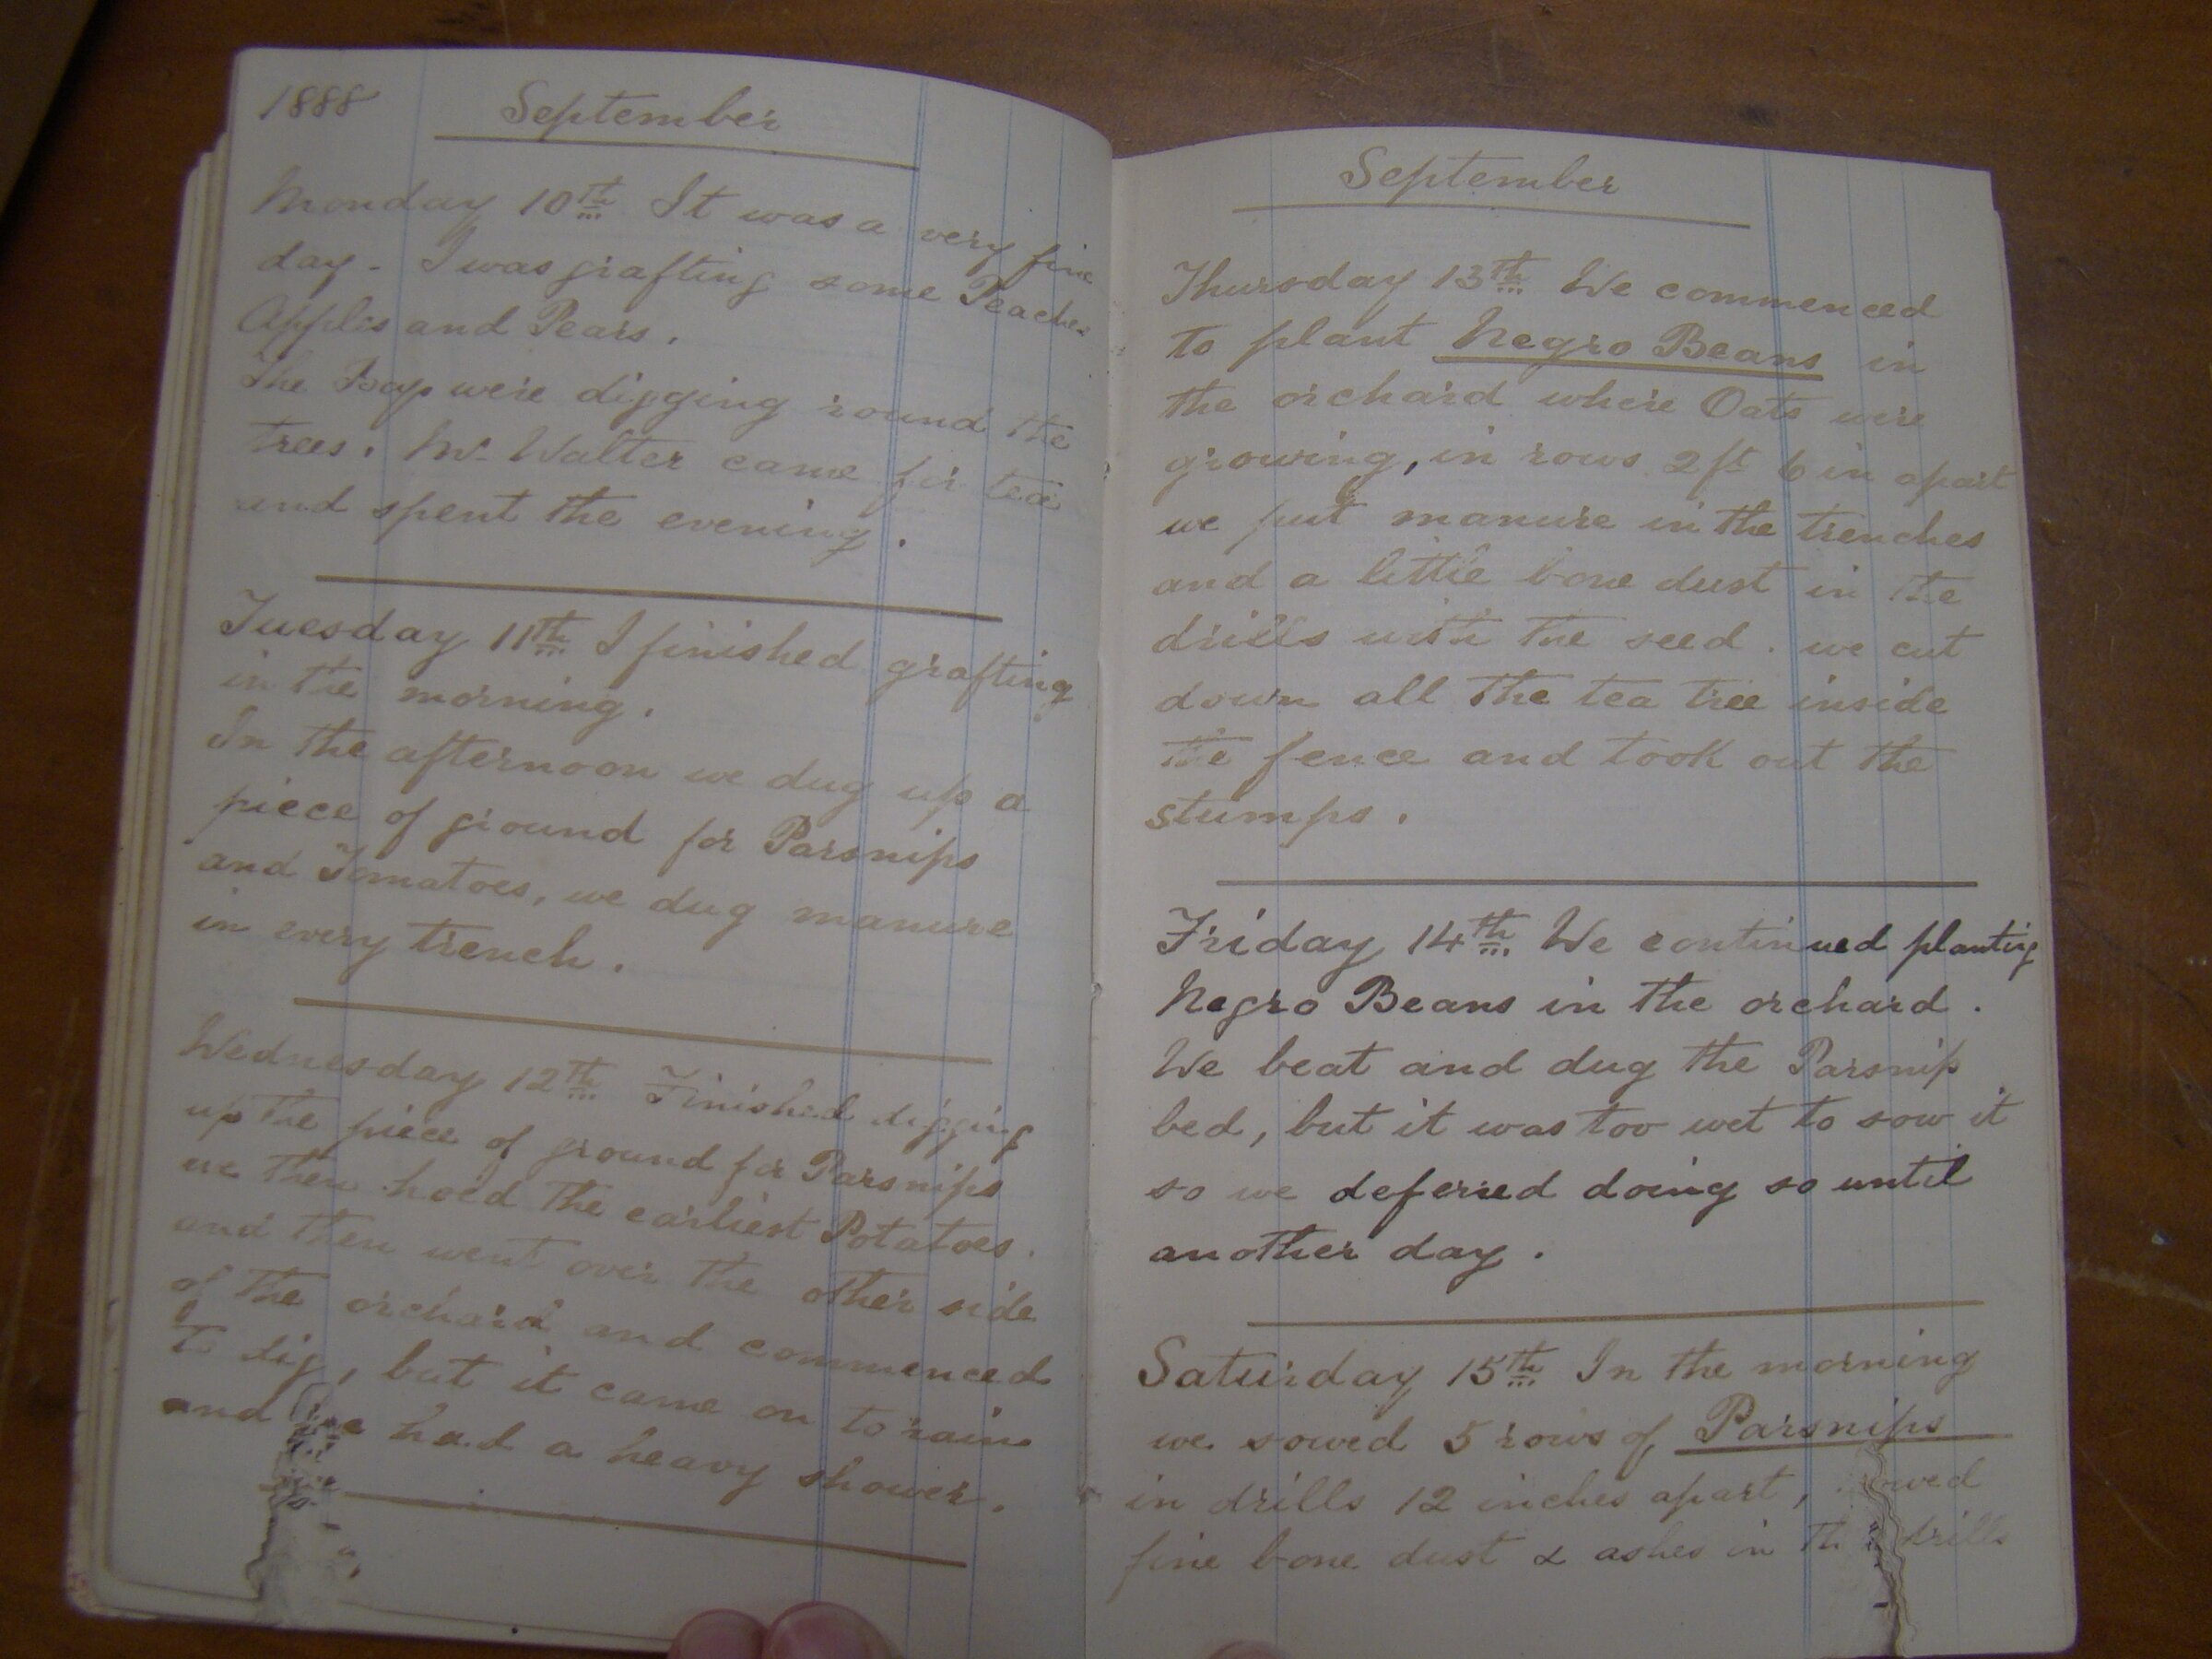 1888 September
Monday 10th It was a very fine
day. I was grafting some Peaches
Apples and Pears.
The Boys were digging round the
trees. Mr Walter came for tea
and spent the evening.
Tuesday 11th I finished grafting
in the morning.
In the afternoon we dug up a
piece of ground for Parsnips
and Tomatoes, we dug manure
in every trench.
Wednesday 12th Finished digging
up the piece of ground for Parsnips
we then hoed the earliest Potatoes.
and then went over the other side
of the orchard and commenced
to dig, but it came on to rain
and we had a heavy shower.
September
Thursday 13th We commenced
to plant Negro Beans in
the orchard where Oats were
growing, in rows 2 ft 6 in apart
we put manure in the trenches
and a little bone dust in the
drills with the seed. we cut
down all the tea tree inside
the fence and took out the
stumps.
Friday 14th We continued planting
Negro Beans in the orchard.
We beat and dug the Parsnip
bed, but it was too wet to sow it
so we deferred doing so until
another day.
Saturday 15th In the morning
we sowed 5 rows of Parsnips
in drills 12 inches apart, sowed
fine bone dust & ashes in the drills